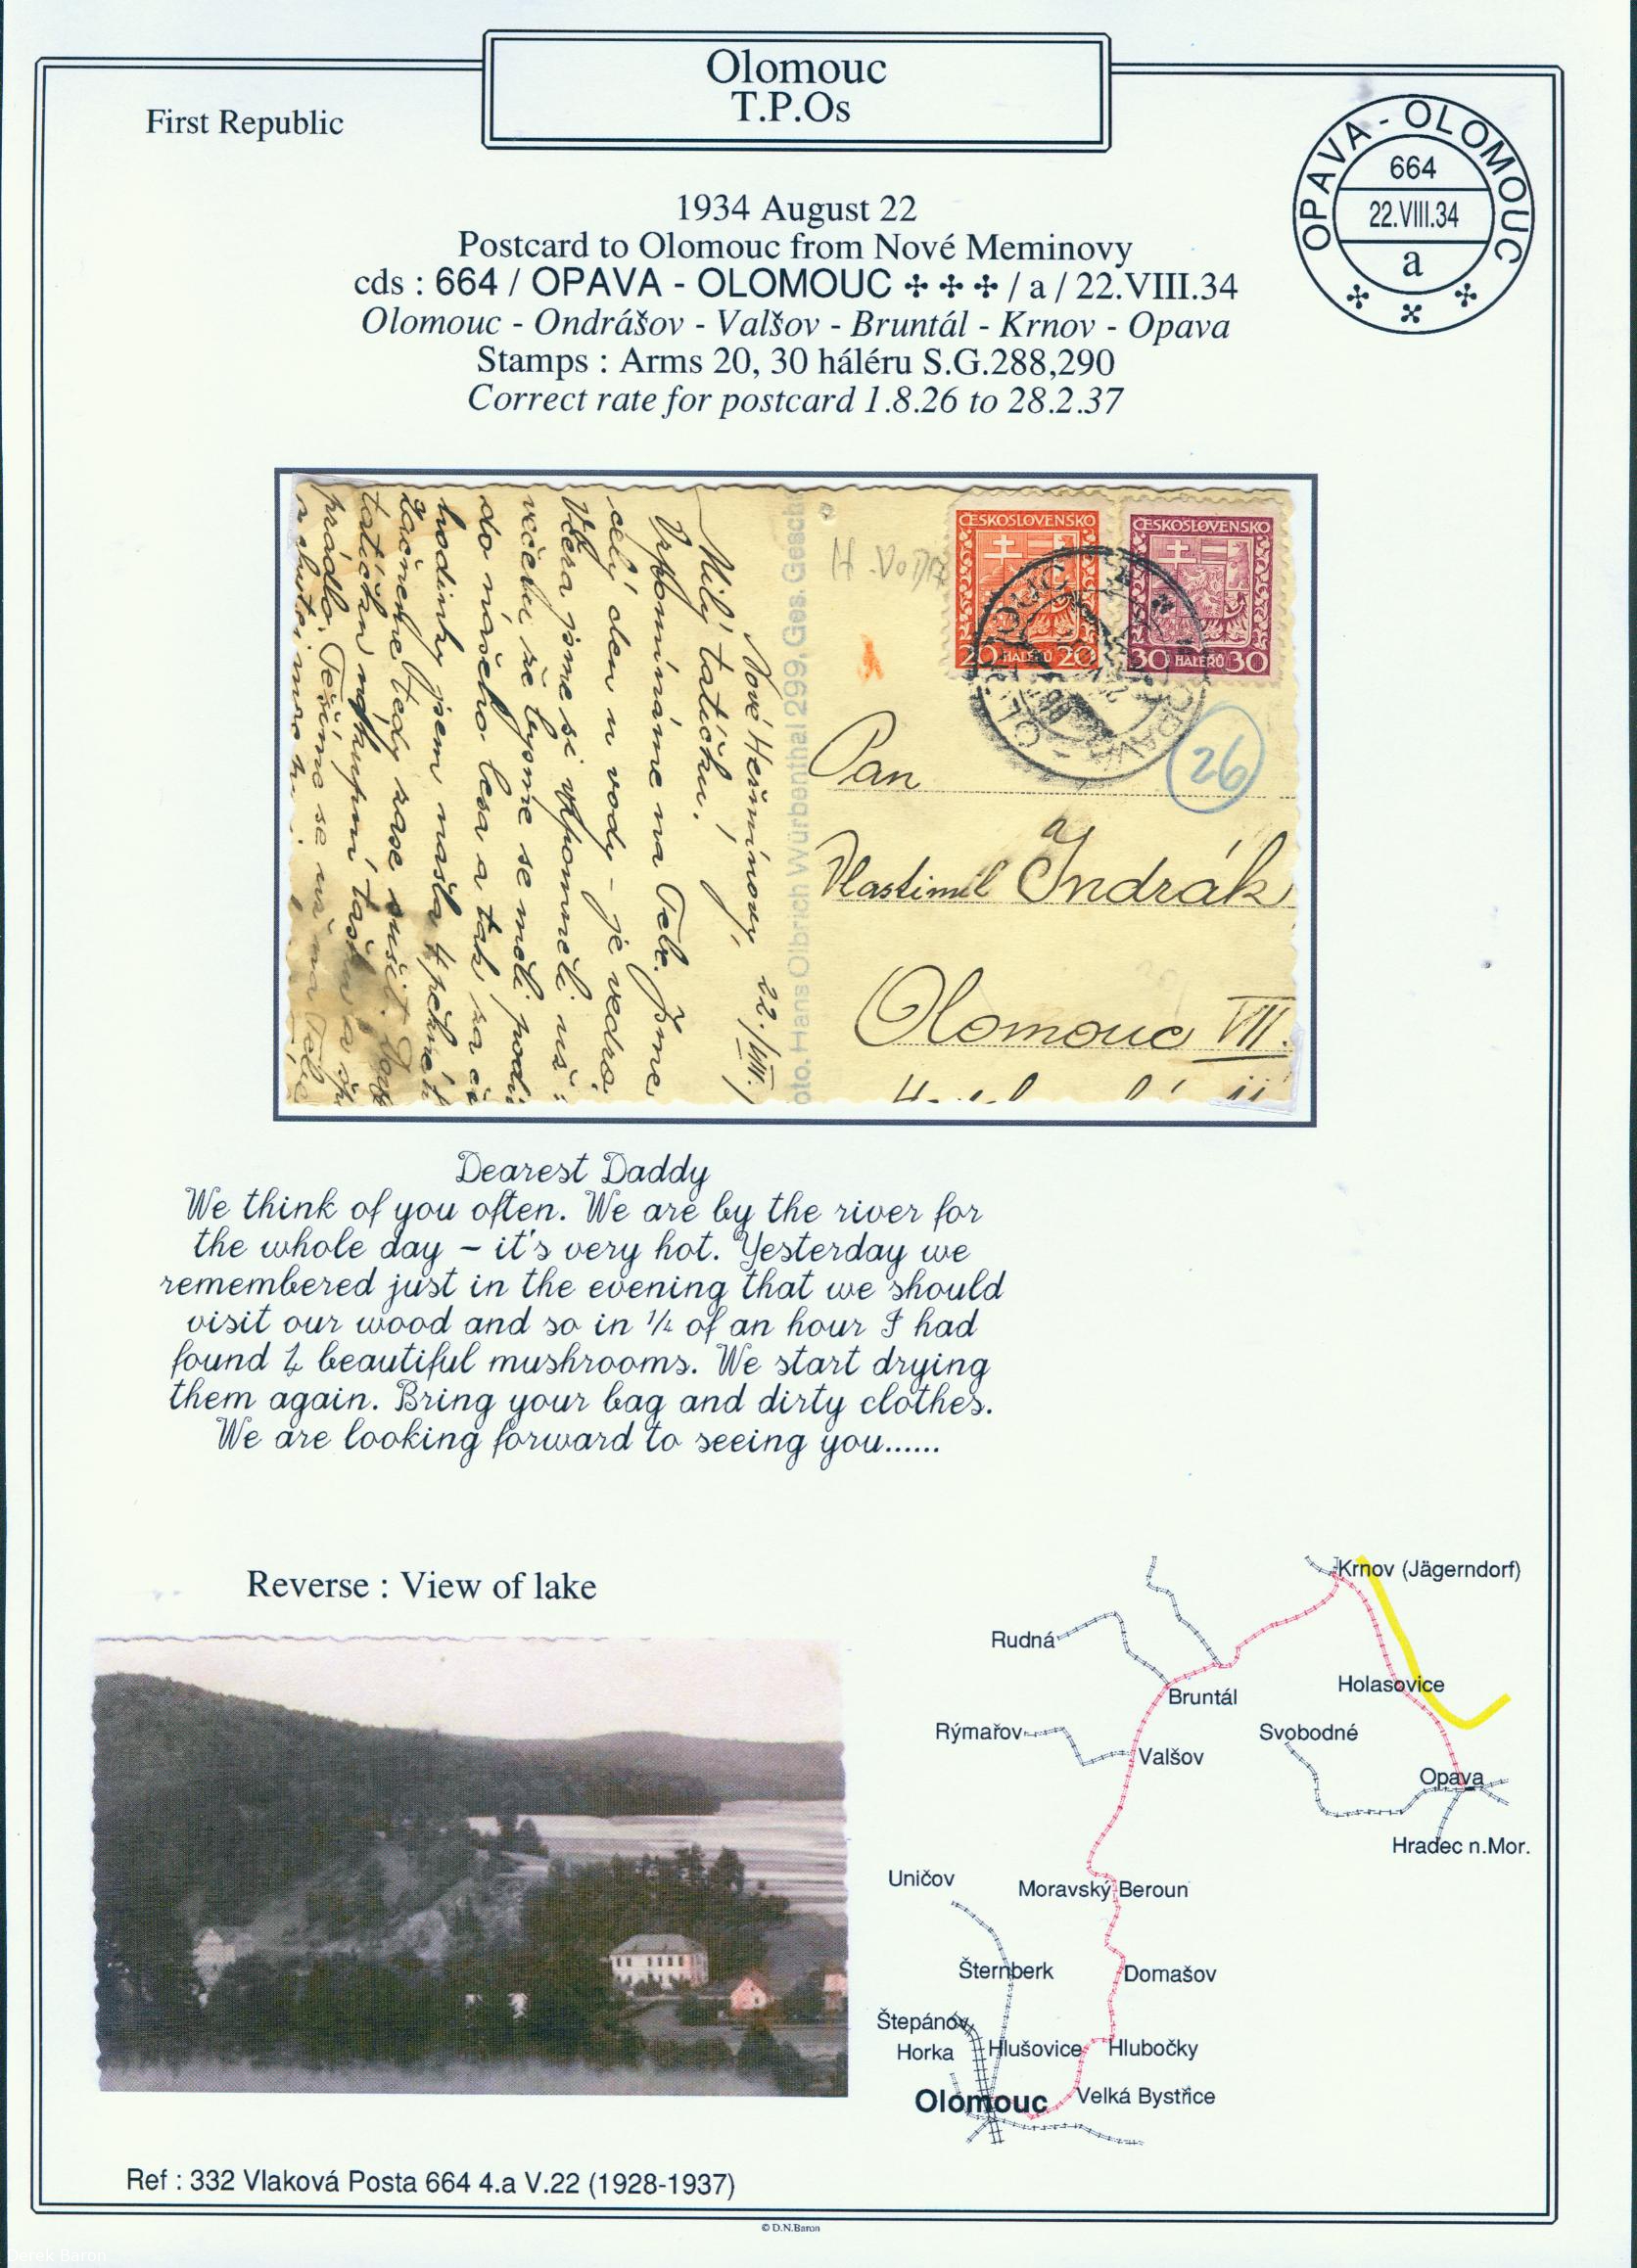 Olomouc
T.P.Os
First Republic
OPAVA - OLOMOUC
664
22.VIII.34
a
1934 August 22
Postcard to Olomouc from Nové Meminovy
cds : 664 / OPAVA - OLOMOUC ✣ ✣ ✣ / a / 22.VIII.34
Olomouc - Ondrášov - Valšov - Bruntál - Krnov - Opava
Stamps : Arms 20, 30 háléru S.G.288,290
Correct rate for postcard 1.8.26 to 28.2.37
ČESKOSLOVENSKO
20 HALÉŘŮ 20
ČESKOSLOVENSKO
30 HALÉŘŮ 30
26
Pan
Vlastimil Indrák
Olomouc VII.
oto. Hans Olbrich Würbenthal 299. Ges. Gesch
Nové Heřminovy, 22./VIII.
Milý tatíčku!
Vzpomínáme na Tebe. Jsme
celý den u vody - je vedro.
Včera jsme si vzpomněli už
večer že bysme se měli podí
do našeho lesa a tak za č
hodinky jsem našla 4 pěkné h
Začneme tedy zase sušit.
prádlo. Těšíme se už na Tebe
Dearest Daddy
We think of you often. We are by the river for
the whole day – it's very hot. Yesterday we
remembered just in the evening that we should
visit our wood and so in ¼ of an hour I had
found 4 beautiful mushrooms. We start drying
them again. Bring your bag and dirty clothes.
We are looking forward to seeing you......
Reverse : View of lake
Krnov (Jägerndorf)
Rudná
Bruntál
Holasovice
Rýmařov
Valšov
Svobodné
Opava
Hradec n.Mor.
Uničov
Moravský Beroun
Šternberk
Domašov
Štepánov
Horka
Hlušovice
Hlubočky
Olomouc
Velká Bystřice
Ref : 332 Vlaková Posta 664 4.a V.22 (1928-1937)
© D.N.Baron
Derek Baron